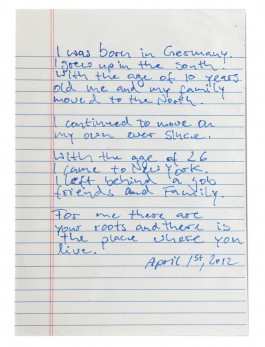 I was born in Germany.
I grew up in the south.
With the age of 10 years
old me and my family
moved to the North.
I continued to move on
my own ever since.
With the age of 26
I came to New York.
I left behind a job
friends and Family.
For me there are
your roots and there is
the place where you
live.
April 1st, 2012